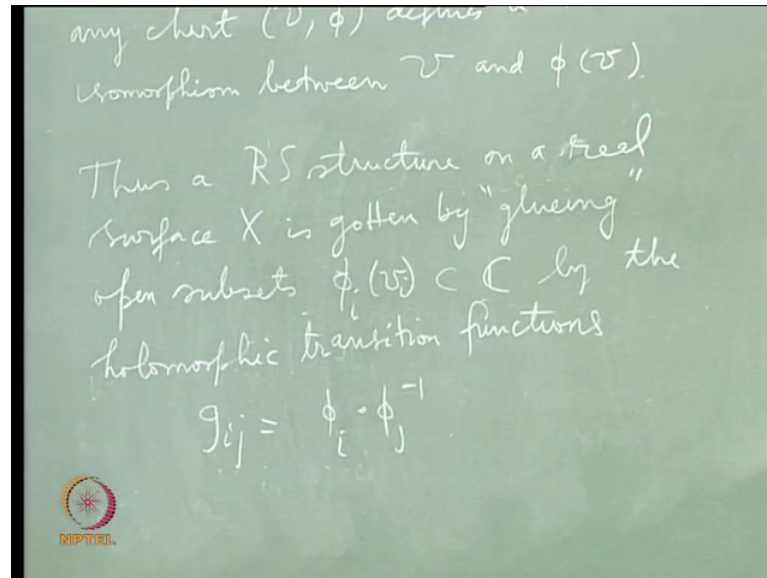 any chart (U, ϕ) defines a
isomorphism between U and ϕ(U).
Thus a RS structure on a real
surface X is gotten by "glueing"
open subsets ϕ_i(U_i) ⊂ ℂ by the
holomorphic transition functions
g_{ij} = ϕ_i · ϕ_j^{-1}
NPTEL